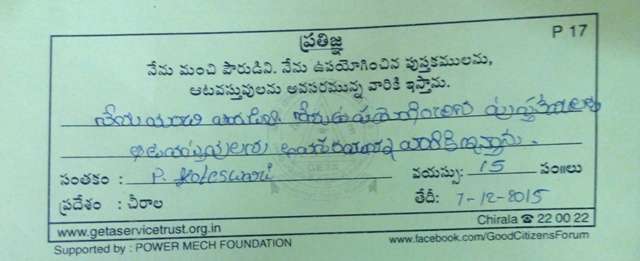 ప్రతిజ్ఞ
P 17
నేను మంచి పౌరుడిని. నేను ఉపయోగించిన పుస్తకములను,
ఆటవస్తువులను అవసరమున్న వారికి ఇస్తాను.
నేను మంచి పౌరుడిని. నేను ఉపయోగించిన పుస్తకములను
ఆటవస్తువులను అవసరమున్న వారికి ఇస్తాను.
సంతకం : P. Koteswari వయస్సు: 15 సం॥లు
ప్రదేశం : చీరాల తేదీ: 7-12-2015
Chirala ☎ 22 00 22
www.getaservicetrust.org.in
Supported by : POWER MECH FOUNDATION www.facebook.com/GoodCitizensForum
GETA